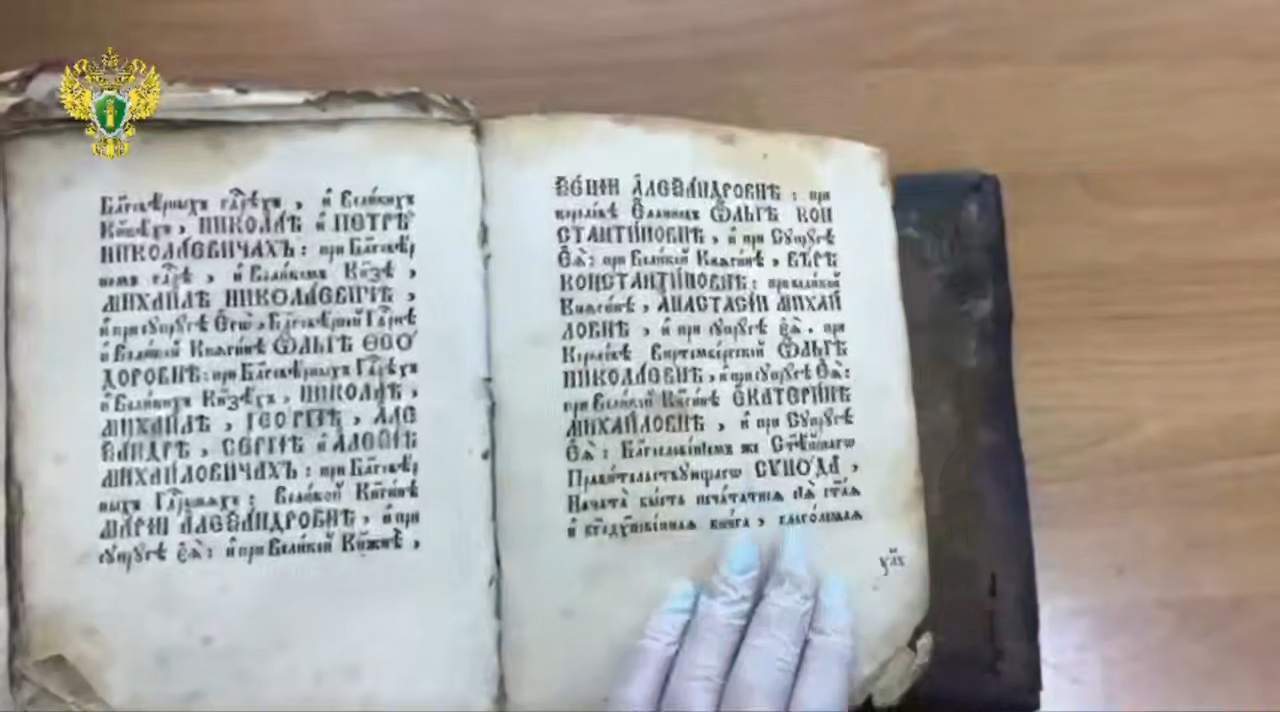 Бл҃говѣрныхъ гдⷭ҇рѣхъ, и҆ Вели́кихъ
Кн҃зѣхъ, НИКОЛА́Ѣ и҆ ПЕТРѢ̀
НИКОЛА́ЕВИЧАХЪ: при Бл҃говѣр
номъ гдⷭ҇рѣ, и҆ Вели́комъ Кн҃зѣ,
МИХАИ́ЛѢ НИКОЛА́ЕВИЧѢ,
и҆ при сꙋпрꙋ́гѣ Е҆гѡ̀, Бл҃говѣ́рной Гдⷭ҇рнѣ
и҆ Вели́кой Кнѧги́нѣ Ѻ҆́ЛЬГѢ ѲЕО́
ДОРОВНѢ: при Бл҃говѣ́рныхъ Гдⷭ҇рѣхъ
и҆ Вели́кихъ Кн҃зѣхъ, НИКОЛА́Ѣ,
МИХАИ́ЛѢ, ГЕѠ́РГІѢ, А҆ЛЕ
ѮА́НДРѢ, СЕ́РГІѢ и҆ А҆ЛЕѮІ́Ѣ
МИХА́ЙЛОВИЧАХЪ: при Бл҃говѣ́р
ныхъ Гдⷭ҇рынѧхъ: Вели́кой Кнѧги́нѣ
МАРІ́И А҆ЛЕѮА́НДРОВНѢ, и҆ при
сꙋпрꙋ́гѣ є҆ѧ̀: и҆ при Вели́кой Кнѧжнѣ̀,
ѮЕ́НІИ А҆ЛЕѮА́НДРОВНѢ: при
короле́вѣ Е҆́ллиновъ Ѻ҆́ЛЬГѢ КОН
СТАНТІ́НОВНѢ, и҆ при Сꙋпрꙋ́гѣ
Е҆ѧ̀: при Вели́кой Кнѧги́нѣ, ВѢ́РѢ
КОНСТАНТІ́НОВНѢ: при вели́кой
Кнѧги́нѣ, А҆НАСТАСІ́И МИХА́Й
ЛОВНѢ, и҆ при сꙋпрꙋ́гѣ є҆ѧ̀. при
Короле́вѣ Виртембе́ргской Ѻ҆́ЛЬГѢ
НИКОЛА́ЕВНѢ, и҆ при сꙋпрꙋ́гѣ Е҆ѧ̀:
при Вели́кой Кнѧги́нѣ Е҆КАТЕРИ́НѢ
МИХА́ЙЛОВНѢ, и҆ при Сꙋпрꙋ́гѣ
Е҆ѧ̀: Благослове́нїемъ же Ст҃ѣ́йшагѡ
Прави́тельствꙋющагѡ СѴНО́ДА,
Нача́та бы́сть печа́татисѧ сїѧ̀ ст҃а́ѧ
и҆ бг҃одꙋхнове́ннаѧ кни́га, глаго́лемаѧ